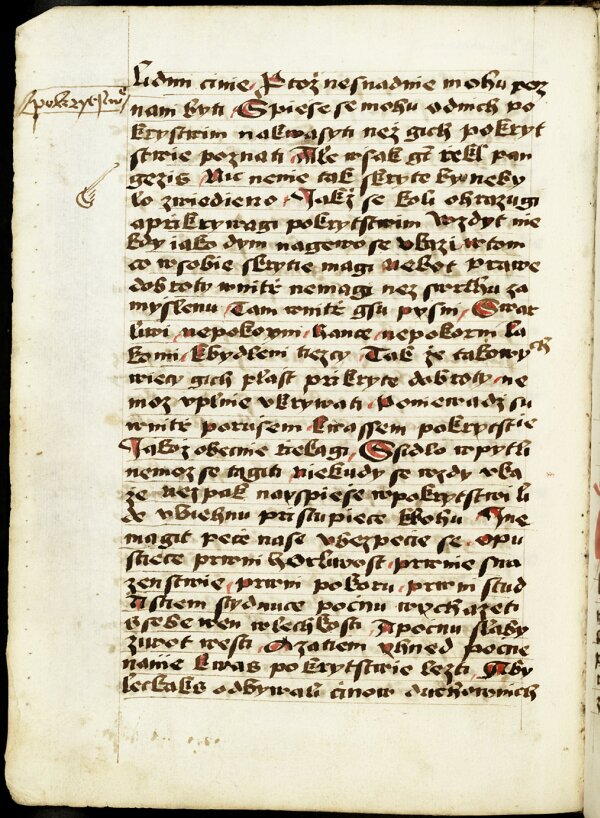 pokrytstwie
lidmi cinie / Protož nesnadnie mohu poz
nani byti / Spiese se mohu odnich po
krystwim nakwasyti nez gich pokryt
stwie poznati / Ale wsak gt rekl pan
gezis / Nic nenie tak skryte by neky
lo zwiedieno / Jakž se koli ohrazugi
a prikrywagi pokrytstwim wzdyt nie
kdy iako dym nagewo se vkazi w tom
co w sobie skrytie magi nebot prawe
dobroty wnitr nemagi nez swrchu za
myslenu / Tam wnitr gsu pysni / Swar
liwi / nepokoyni / hance / nepokorni la
komi / k bydleni tiezcy / Tak že takowych
wiecy gich plast prikryte dobroty / ne
moz vplnie vkrywati / Poniewadz su
wnitr porusem kwassem pokrycstie
Jakož obecnie riekagi / Ssidlo w pytli
nemoz se tagiti niekudy se wzdy vka
že nez pak nayspiese w pokrytstwi li
de vbiehnu pristupiece k bohu / A ne
magit pece nase vbezpecie se / opu
stiece prwni horliwost / prwnie sna
zenstwie / prwni pokoru / prwni stud
A s tiem stydnuce počnu wychazeti
s sebe wen w lechkosti / A počnu slaby
zywot westi / A zatiem vhned pocne
nanie kwas pokrytstwie lezti / Aby
leckaks odbywali cinow duchownich